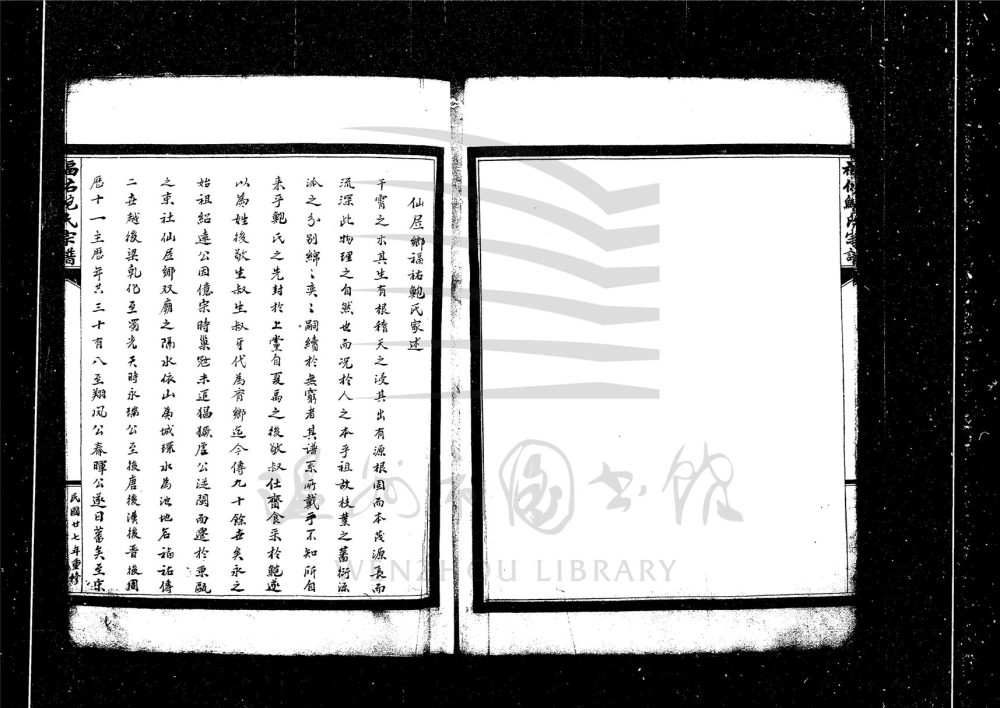 福佑鲍氏宗譜
仙居鄉福祐鮑氏家述
干霄之木其生有根稽天之浸其出有源根固而本茂源長而
流深此物理之自然也而况於人之本乎祖故枝葉之蕃衍流
派之分别綿〻奕〻嗣續於無窮者其谱系所載乎不知所自
来乎鲍氏之先封於上黨自夏禹之後敬叔仕齊食采於鲍遂
以為姓後敬生叔生叔牙代為齊鄉迄今傳九十餘世矣永之
始祖紹遠公因僖宗時巢冦未逭猖獗虐公從閩而遷於東甌
之東社仙居鄉双廟之隔水依山為城環水為池地名福祐傳
二世越後梁乾化至蜀光天時永瑞公至後唐後漢後晋後周
歷十一主歷年共三十有八至翔凤公春暉公遂日蕃矣至宋
福佑鲍氏宗譜
民國廿七年重修
WENZHOU LIBRARY